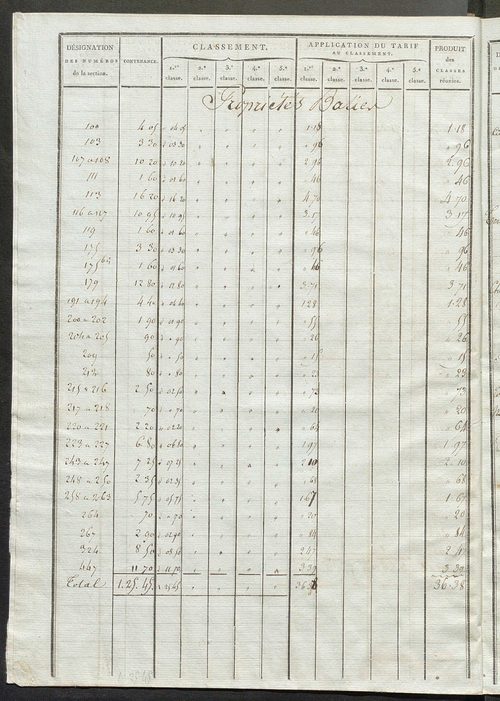 DÉSIGNATION DES NUMÉROS de la section. CONTENANCE. CLASSEMENT. APPLICATION DU TARIF AU CLASSEMENT. PRODUIT des CLASSES réunies.
1.re classe. 2.e classe. 3.e classe. 4.e classe. 5.e classe. 1.re classe. 2.e classe. 3.e classe. 4.e classe. 5.e classe.
Propriétés Baties
100 4 05 04 05 1 18 1 18
103 3 30 03 30 96 96
107 a 108 10 20 10 20 2 96 2 96
111 1 60 01 60 46 46
113 16 20 16 20 4 70 4 70
116 a 117 10 95 10 95 3 17 3 17
119 1 60 01 60 46 46
175 3 30 03 30 96 96
175 bis 1 60 01 60 46 46
179 12 80 12 80 3 71 3 71
191 a 194 4 40 04 40 1 28 1 28
200 a 202 1 90 01 90 55 55
204 a 205 90 90 26 26
209 50 50 15 15
212 80 80 23 23
215 & 216 2 50 02 50 73 73
217 a 218 70 70 20 20
220 a 221 2 20 02 20 64 64
223 a 227 6 80 06 80 1 97 1 97
243 a 247 7 25 07 25 2 10 2 10
248 a 250 2 35 02 35 68 68
258 a 263 5 75 05 75 1 67 1 67
264 70 70 20 20
267 2 90 02 90 84 84
324 8 50 08 50 2 47 2 47
447 11 70 11 70 3 39 3 39
Total 1. 25. 45. 25 45 36 38 36. 38